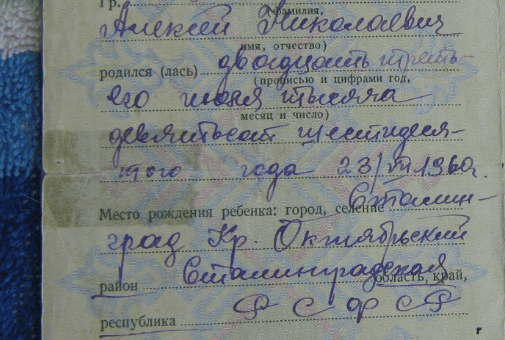 Гр.
фамилия,
Алексей Николаевич
имя, отчество)
родился (лась) двадцать треть-
(прописью и цифрами год,
его июня тысяча
месяц и число)
девятьсот шестидеся-
того года 23/VI 1960г.
Место рождения ребенка: город, селение Сталин-
град Кр. Октябрьский
район Сталинградская область, край,
республика РСФСР
г